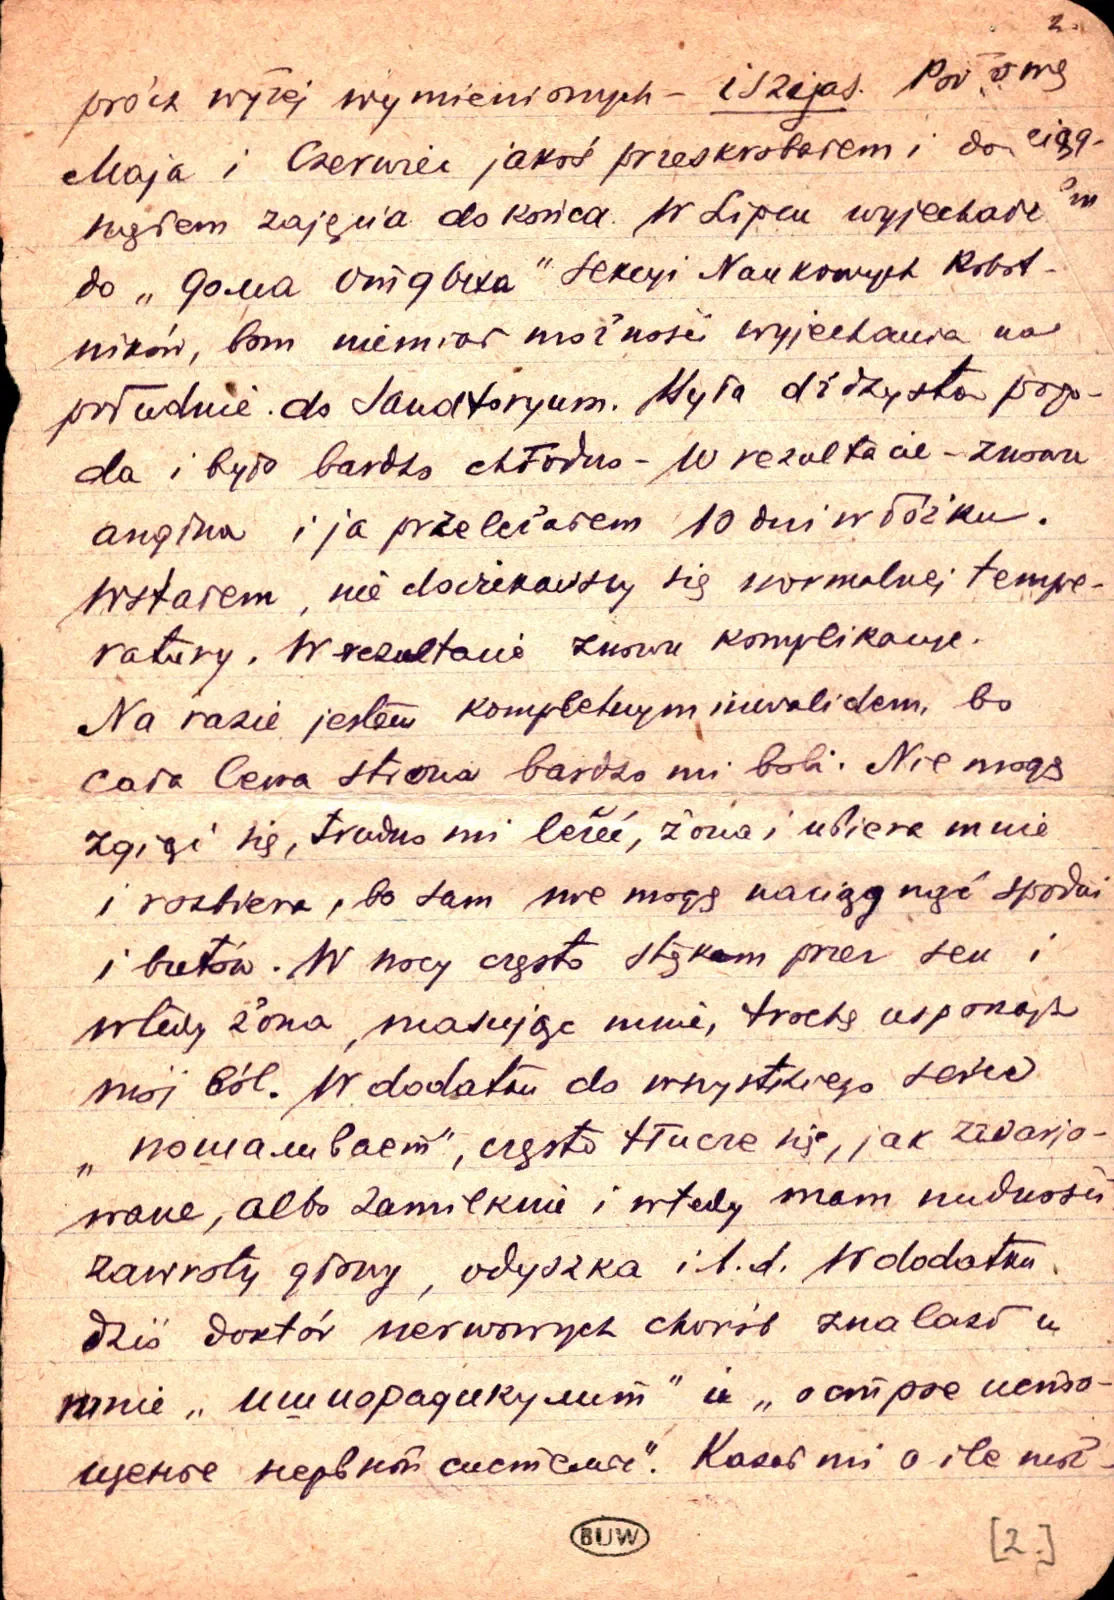 2.
prócz wyżej wymienionych – iszijas. Połowę
Maja i Czerwiec jakoś przeskrobałem i dociąg-
nąłem zajęcia do końca. W Lipcu wyjechałem
do „Дома Отдыха" Sekcyi Naukowych Robot-
ników, bom niemiał możności wyjechania na
południe do Sanatoryum. Była dżdżysta pogo-
da i było bardzo chłodno – W rezultacie – znowu
angina i ja przeleżałem 10 dni w łóżku.
Wstałem, nie doczekawszy się normalnej tempe-
ratury. W rezultacie znowu komplikacye.
Na razie jestem kompletnym inwalidem, bo
cała lewa strona bardzo mi boli. Nie mogę
zgiąć się, trudno mi leżeć, żona i ubiera mnie
i rozbiera, bo sam nie mogę naciągnąć spodni
i butów. W nocy często stękam przez sen i
wtedy żona, masując mnie, trochę uspokaja
mój ból. W dodatku do wszystkiego serce
„пошаливает", często tłucze się, jak zwarjo-
wane, albo zamilknie i wtedy mam nudności
zawroty głowy, odyszka i t.d. W dodatku
dziś doktór nerwowych chorób znalazł u
mnie „ишиорадикулит" и „острое исто-
щение нервной системы". Kazał mi o ile moż-
BUW
[2.]